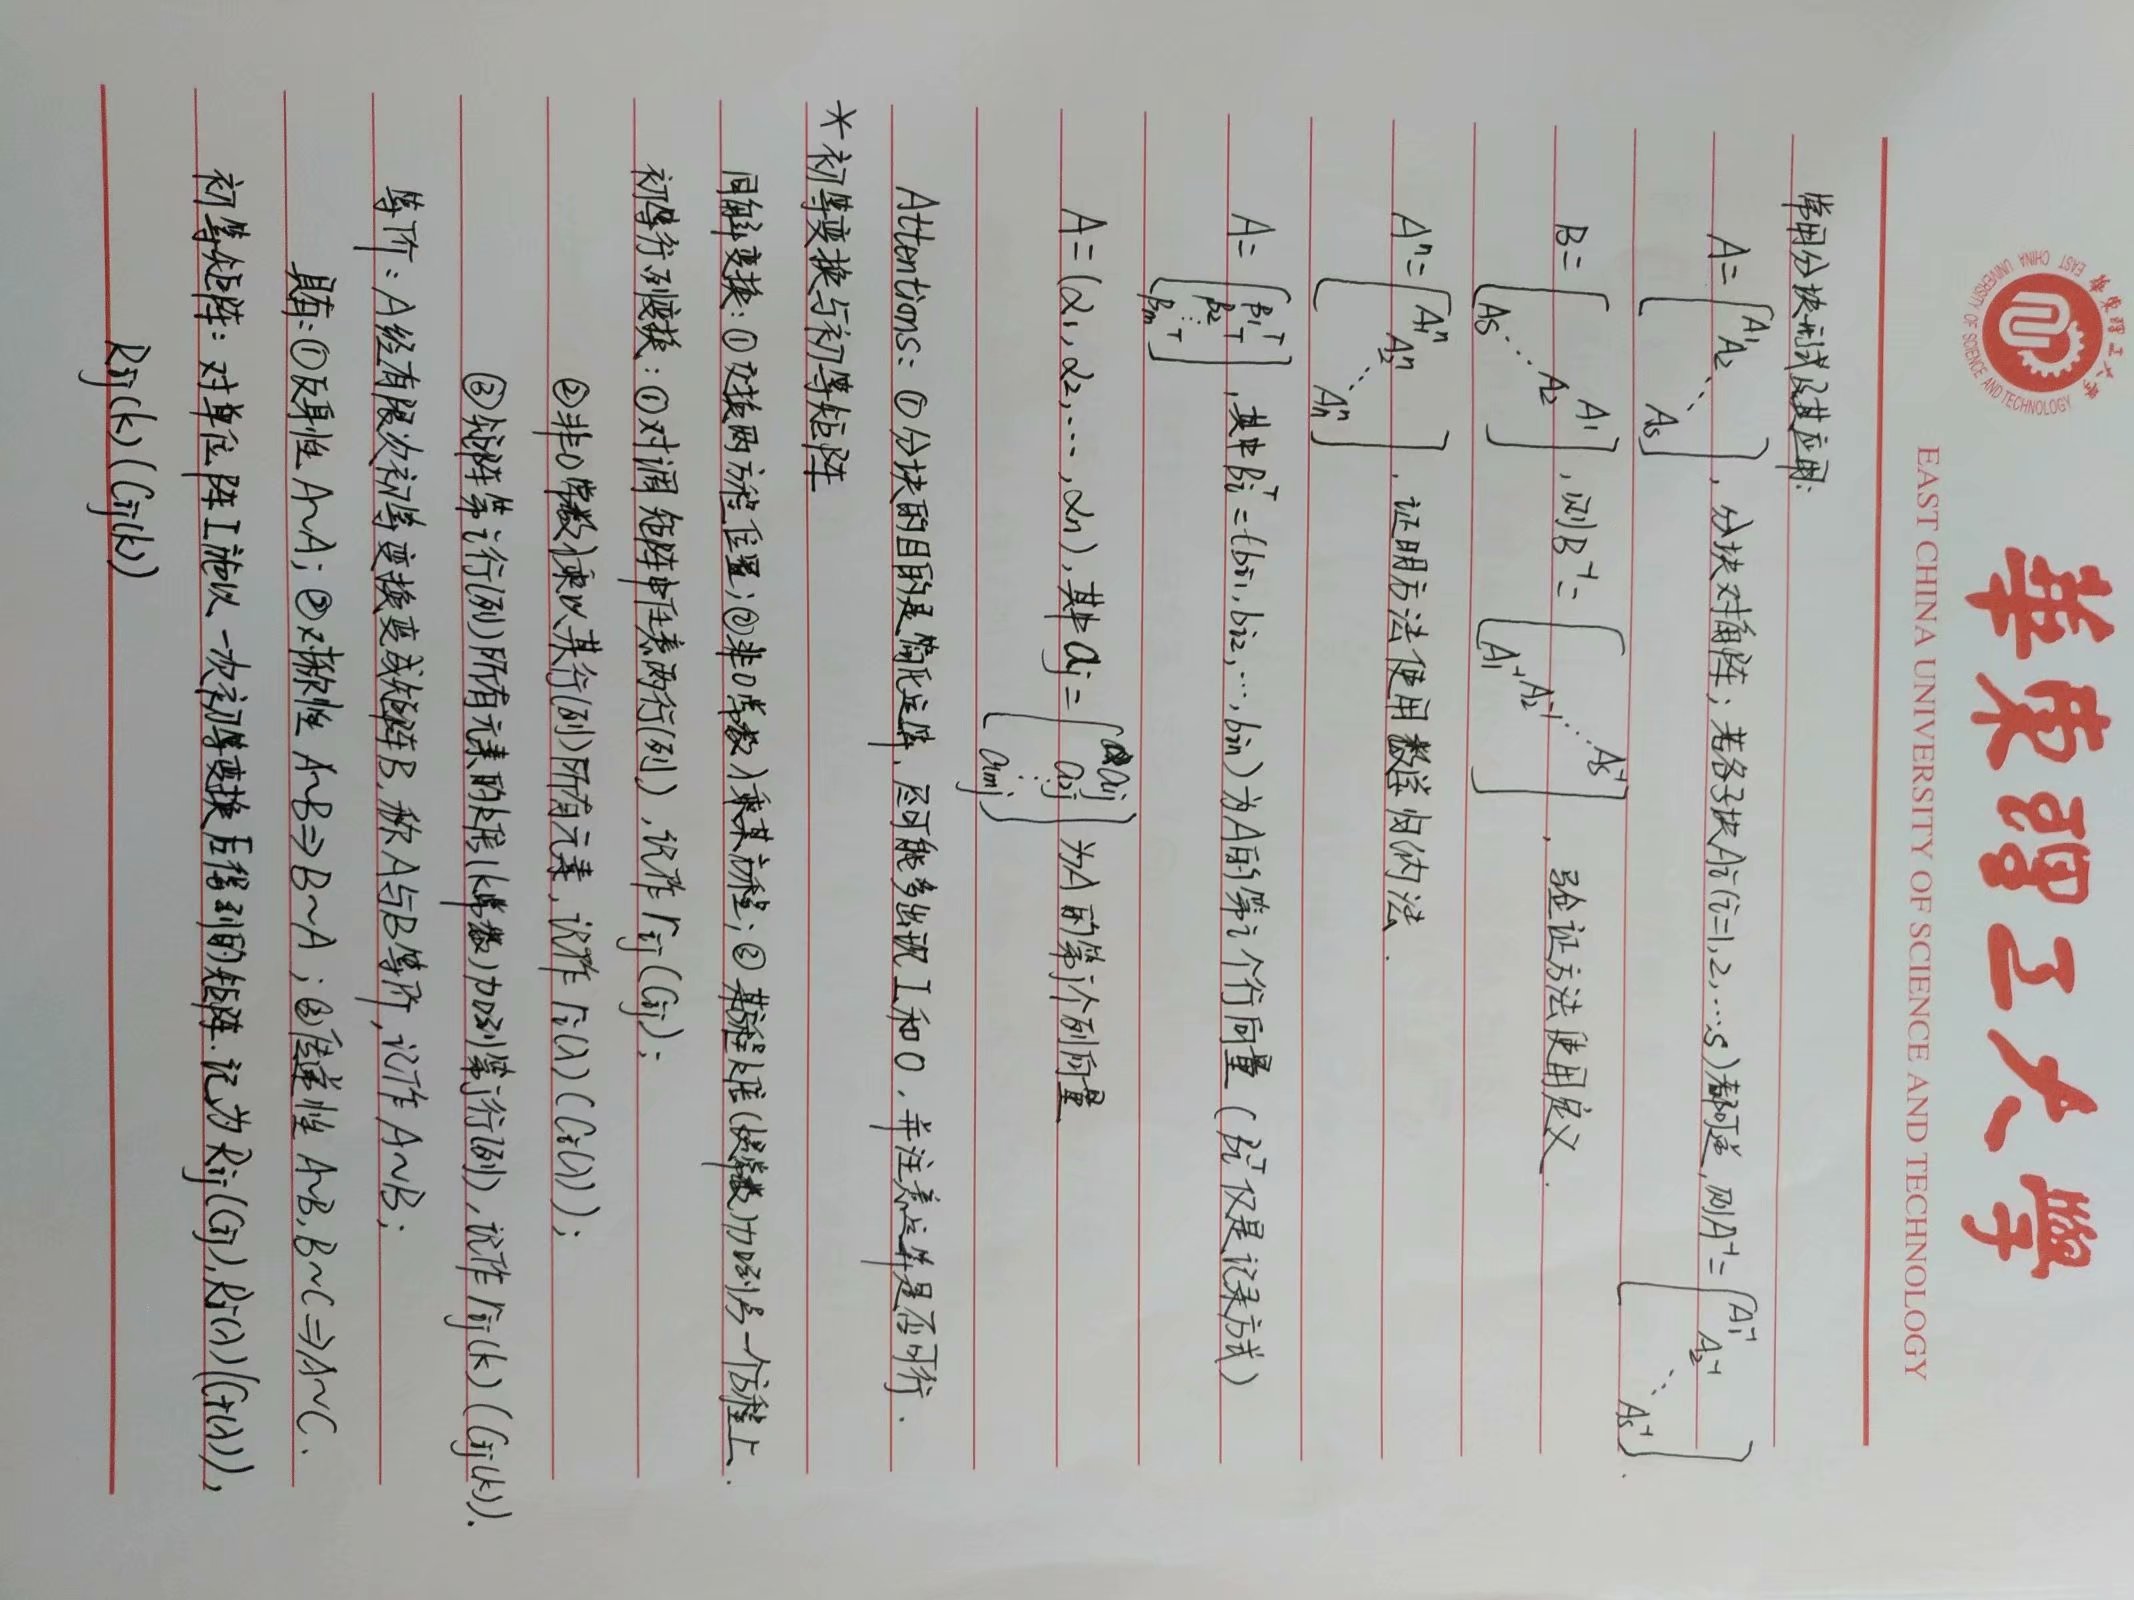 華東理工大學
EAST CHINA UNIVERSITY OF SCIENCE AND TECHNOLOGY
華東理工大學
EAST CHINA UNIVERSITY OF SCIENCE AND TECHNOLOGY
常用分块形式及其应用:
A=[A₁ A₂ ⋱ Aₛ], 分块对角阵; 若各子块Aᵢ(i=1,2,…,s)都可逆, 则A⁻¹=[A₁⁻¹ A₂⁻¹ ⋱ Aₛ⁻¹].
B=[A₁ A₂ ⋰ Aₛ], 则B⁻¹=[Aₛ⁻¹ ⋰ A₂⁻¹ A₁⁻¹], 验证方法使用定义.
Aⁿ=[A₁ⁿ A₂ⁿ ⋱ Aₙⁿ], 证明方法使用数学归纳法.
A=[β₁ᵀ β₂ᵀ ⋮ βₘᵀ], 其中βᵢᵀ=(bᵢ₁,bᵢ₂,…,bᵢₙ)为A的第i个行向量(βᵢᵀ仅是记录方式)
A=(α₁,α₂,…,αₙ), 其中αⱼ=[a₁ⱼ a₂ⱼ ⋮ aₘⱼ]为A的第j个列向量
Attentions: ①分块的目的是简化运算, 尽可能多出现I和O, 并注意运算是否可行.
*初等变换与初等矩阵
同解变换:①交换两方程位置;②非0常数λ乘某方程;③某方程k倍(k常数)加到另一个方程上.
初等行列变换:①对调矩阵中任意两行(列),记作rᵢⱼ(Cᵢⱼ);
②非0常数λ乘以某行(列)所有元素,记作rᵢ(λ)(Cᵢ(λ));
③矩阵第i行(列)所有元素的k倍(k常数)加到第j行(列),记作rᵢⱼ(k)(Cᵢⱼ(k)).
等价:A经有限次初等变换变成矩阵B,称A与B等价,记作A~B;
具有:①反身性 A~A;②对称性 A~B⇒B~A;③传递性 A~B,B~C⇒A~C.
初等矩阵:对单位阵I施以一次初等变换后得到的矩阵.记为Rᵢⱼ(Cᵢⱼ),Rᵢ(λ)(Cᵢ(λ)),
Rᵢⱼ(k)(Cᵢⱼ(k))